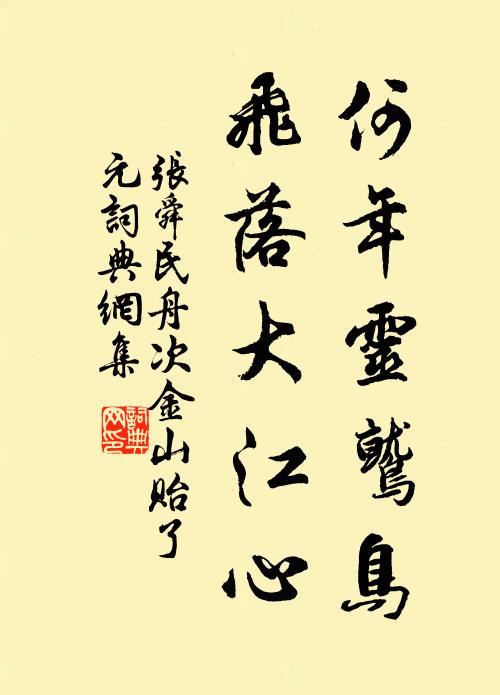 何年靈鷲島
飛落大江心
張舜民舟次金山貽了
元詞典網集
詞典
网印